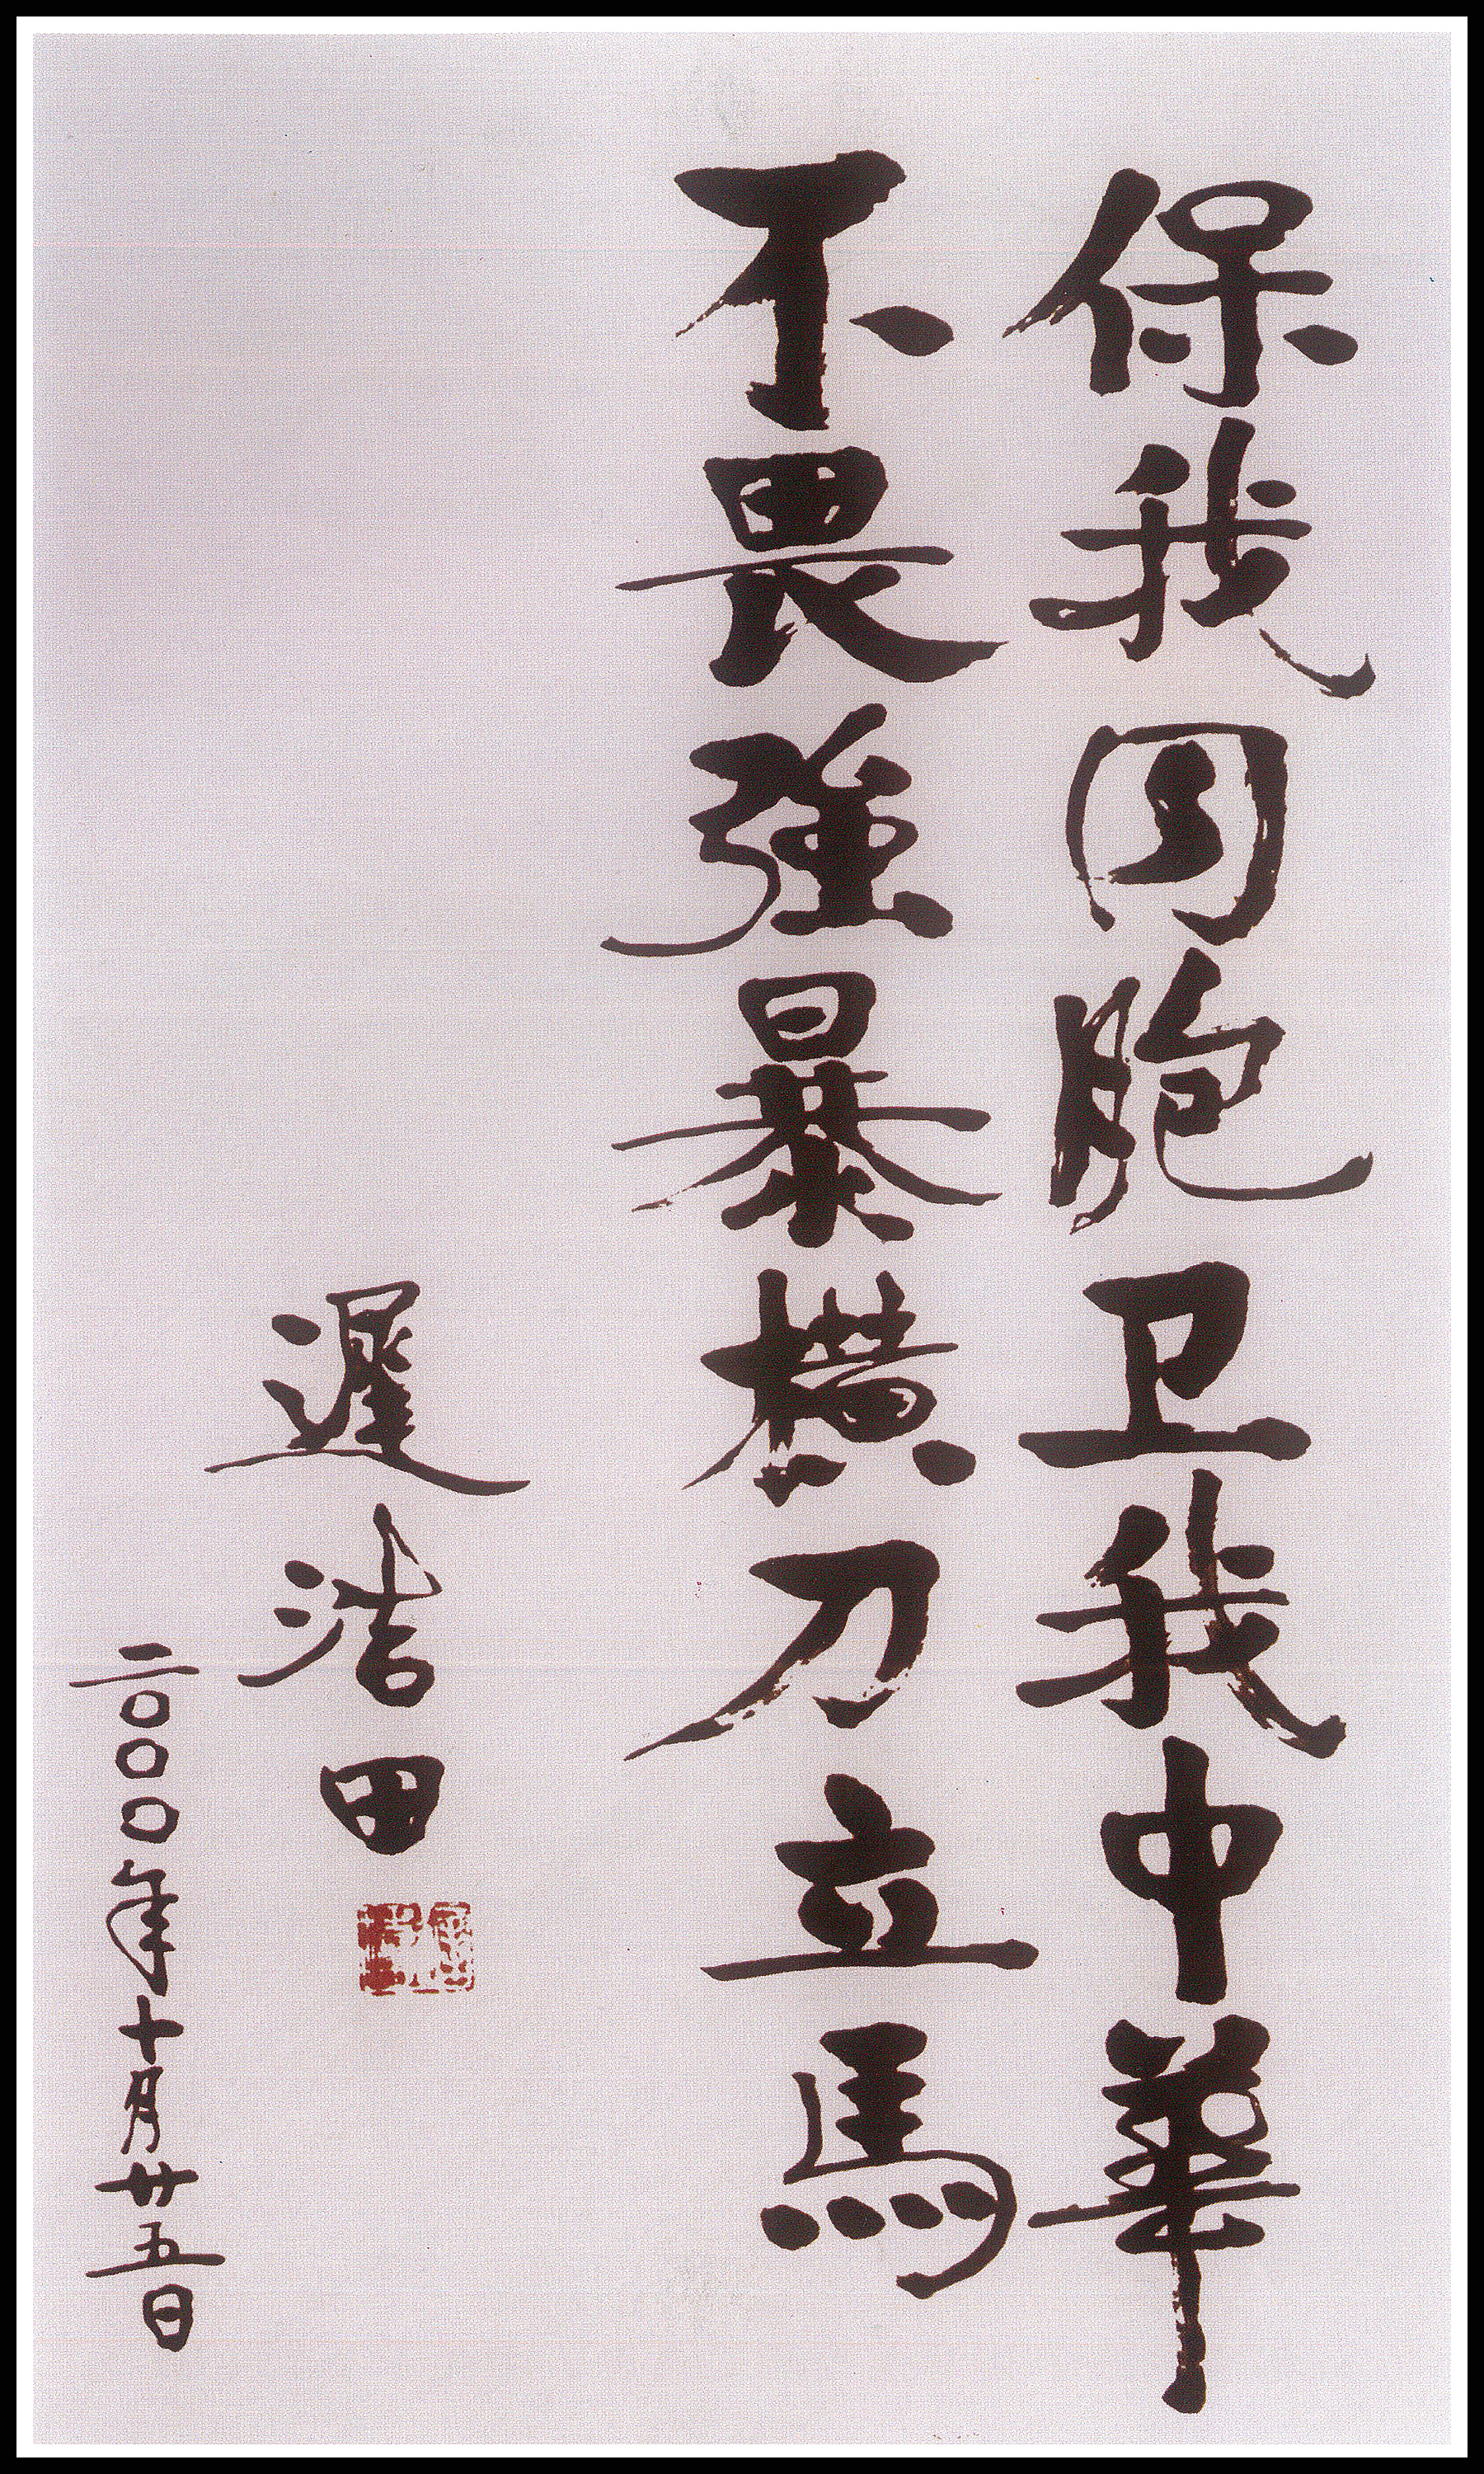 保我同胞卫我中華
不畏強暴橫刀立馬
遲浩田
二〇〇〇年十月廿五日